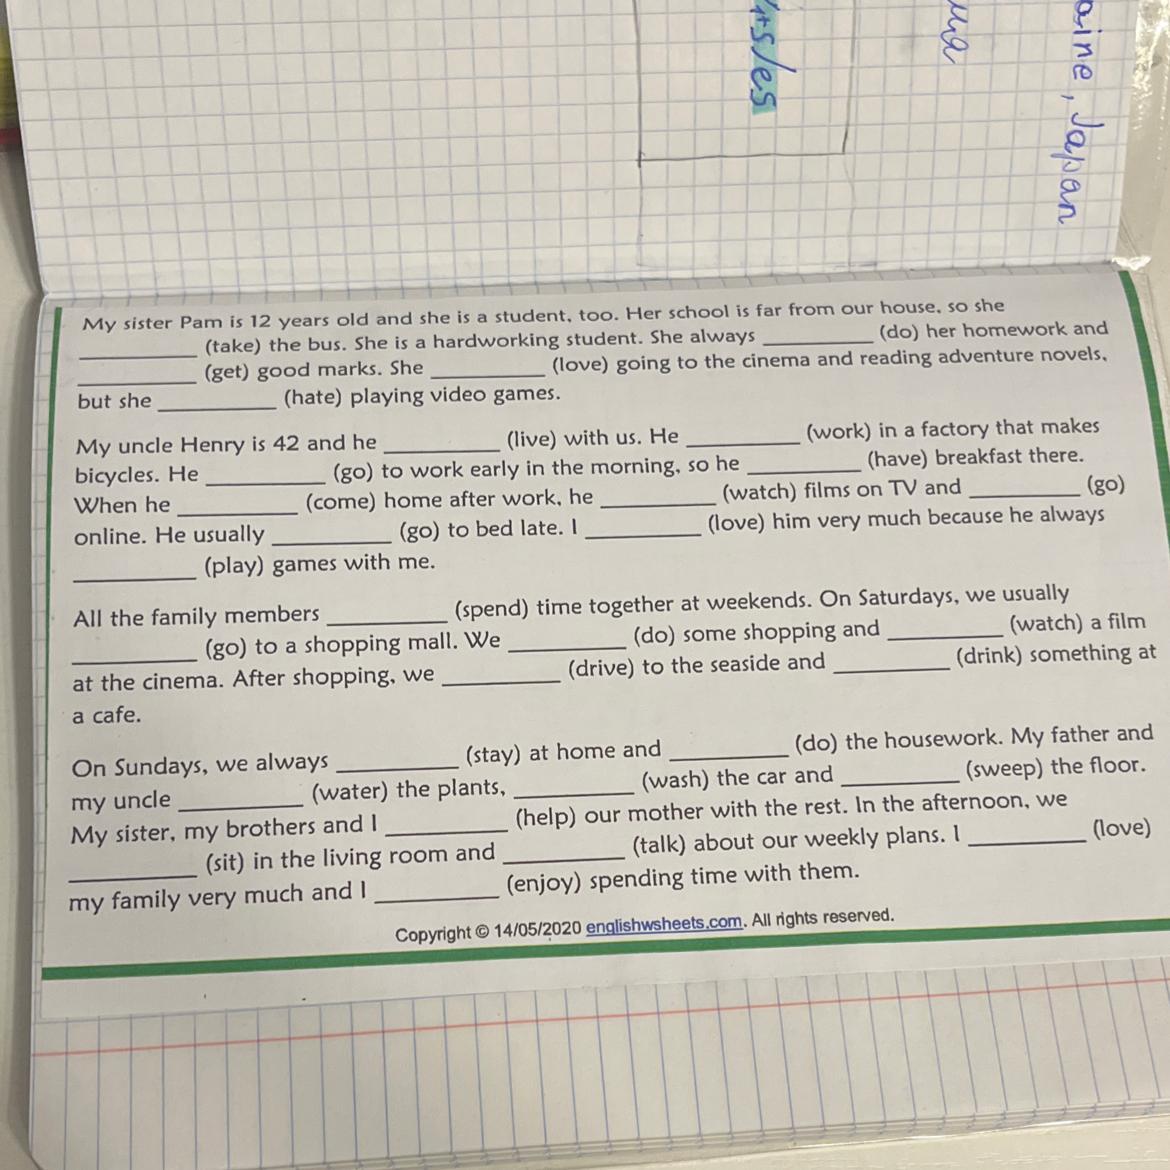 +s/es
aine, Japan
My sister Pam is 12 years old and she is a student, too. Her school is far from our house, so she
__________ (take) the bus. She is a hardworking student. She always __________ (do) her homework and
__________ (get) good marks. She __________ (love) going to the cinema and reading adventure novels,
but she __________ (hate) playing video games.
My uncle Henry is 42 and he __________ (live) with us. He __________ (work) in a factory that makes
bicycles. He __________ (go) to work early in the morning, so he __________ (have) breakfast there.
When he __________ (come) home after work, he __________ (watch) films on TV and __________ (go)
online. He usually __________ (go) to bed late. I __________ (love) him very much because he always
__________ (play) games with me.
All the family members __________ (spend) time together at weekends. On Saturdays, we usually
__________ (go) to a shopping mall. We __________ (do) some shopping and __________ (watch) a film
at the cinema. After shopping, we __________ (drive) to the seaside and __________ (drink) something at
a cafe.
On Sundays, we always __________ (stay) at home and __________ (do) the housework. My father and
my uncle __________ (water) the plants, __________ (wash) the car and __________ (sweep) the floor.
My sister, my brothers and I __________ (help) our mother with the rest. In the afternoon, we
__________ (sit) in the living room and __________ (talk) about our weekly plans. I __________ (love)
my family very much and I __________ (enjoy) spending time with them.
Copyright © 14/05/2020 englishwsheets.com. All rights reserved.